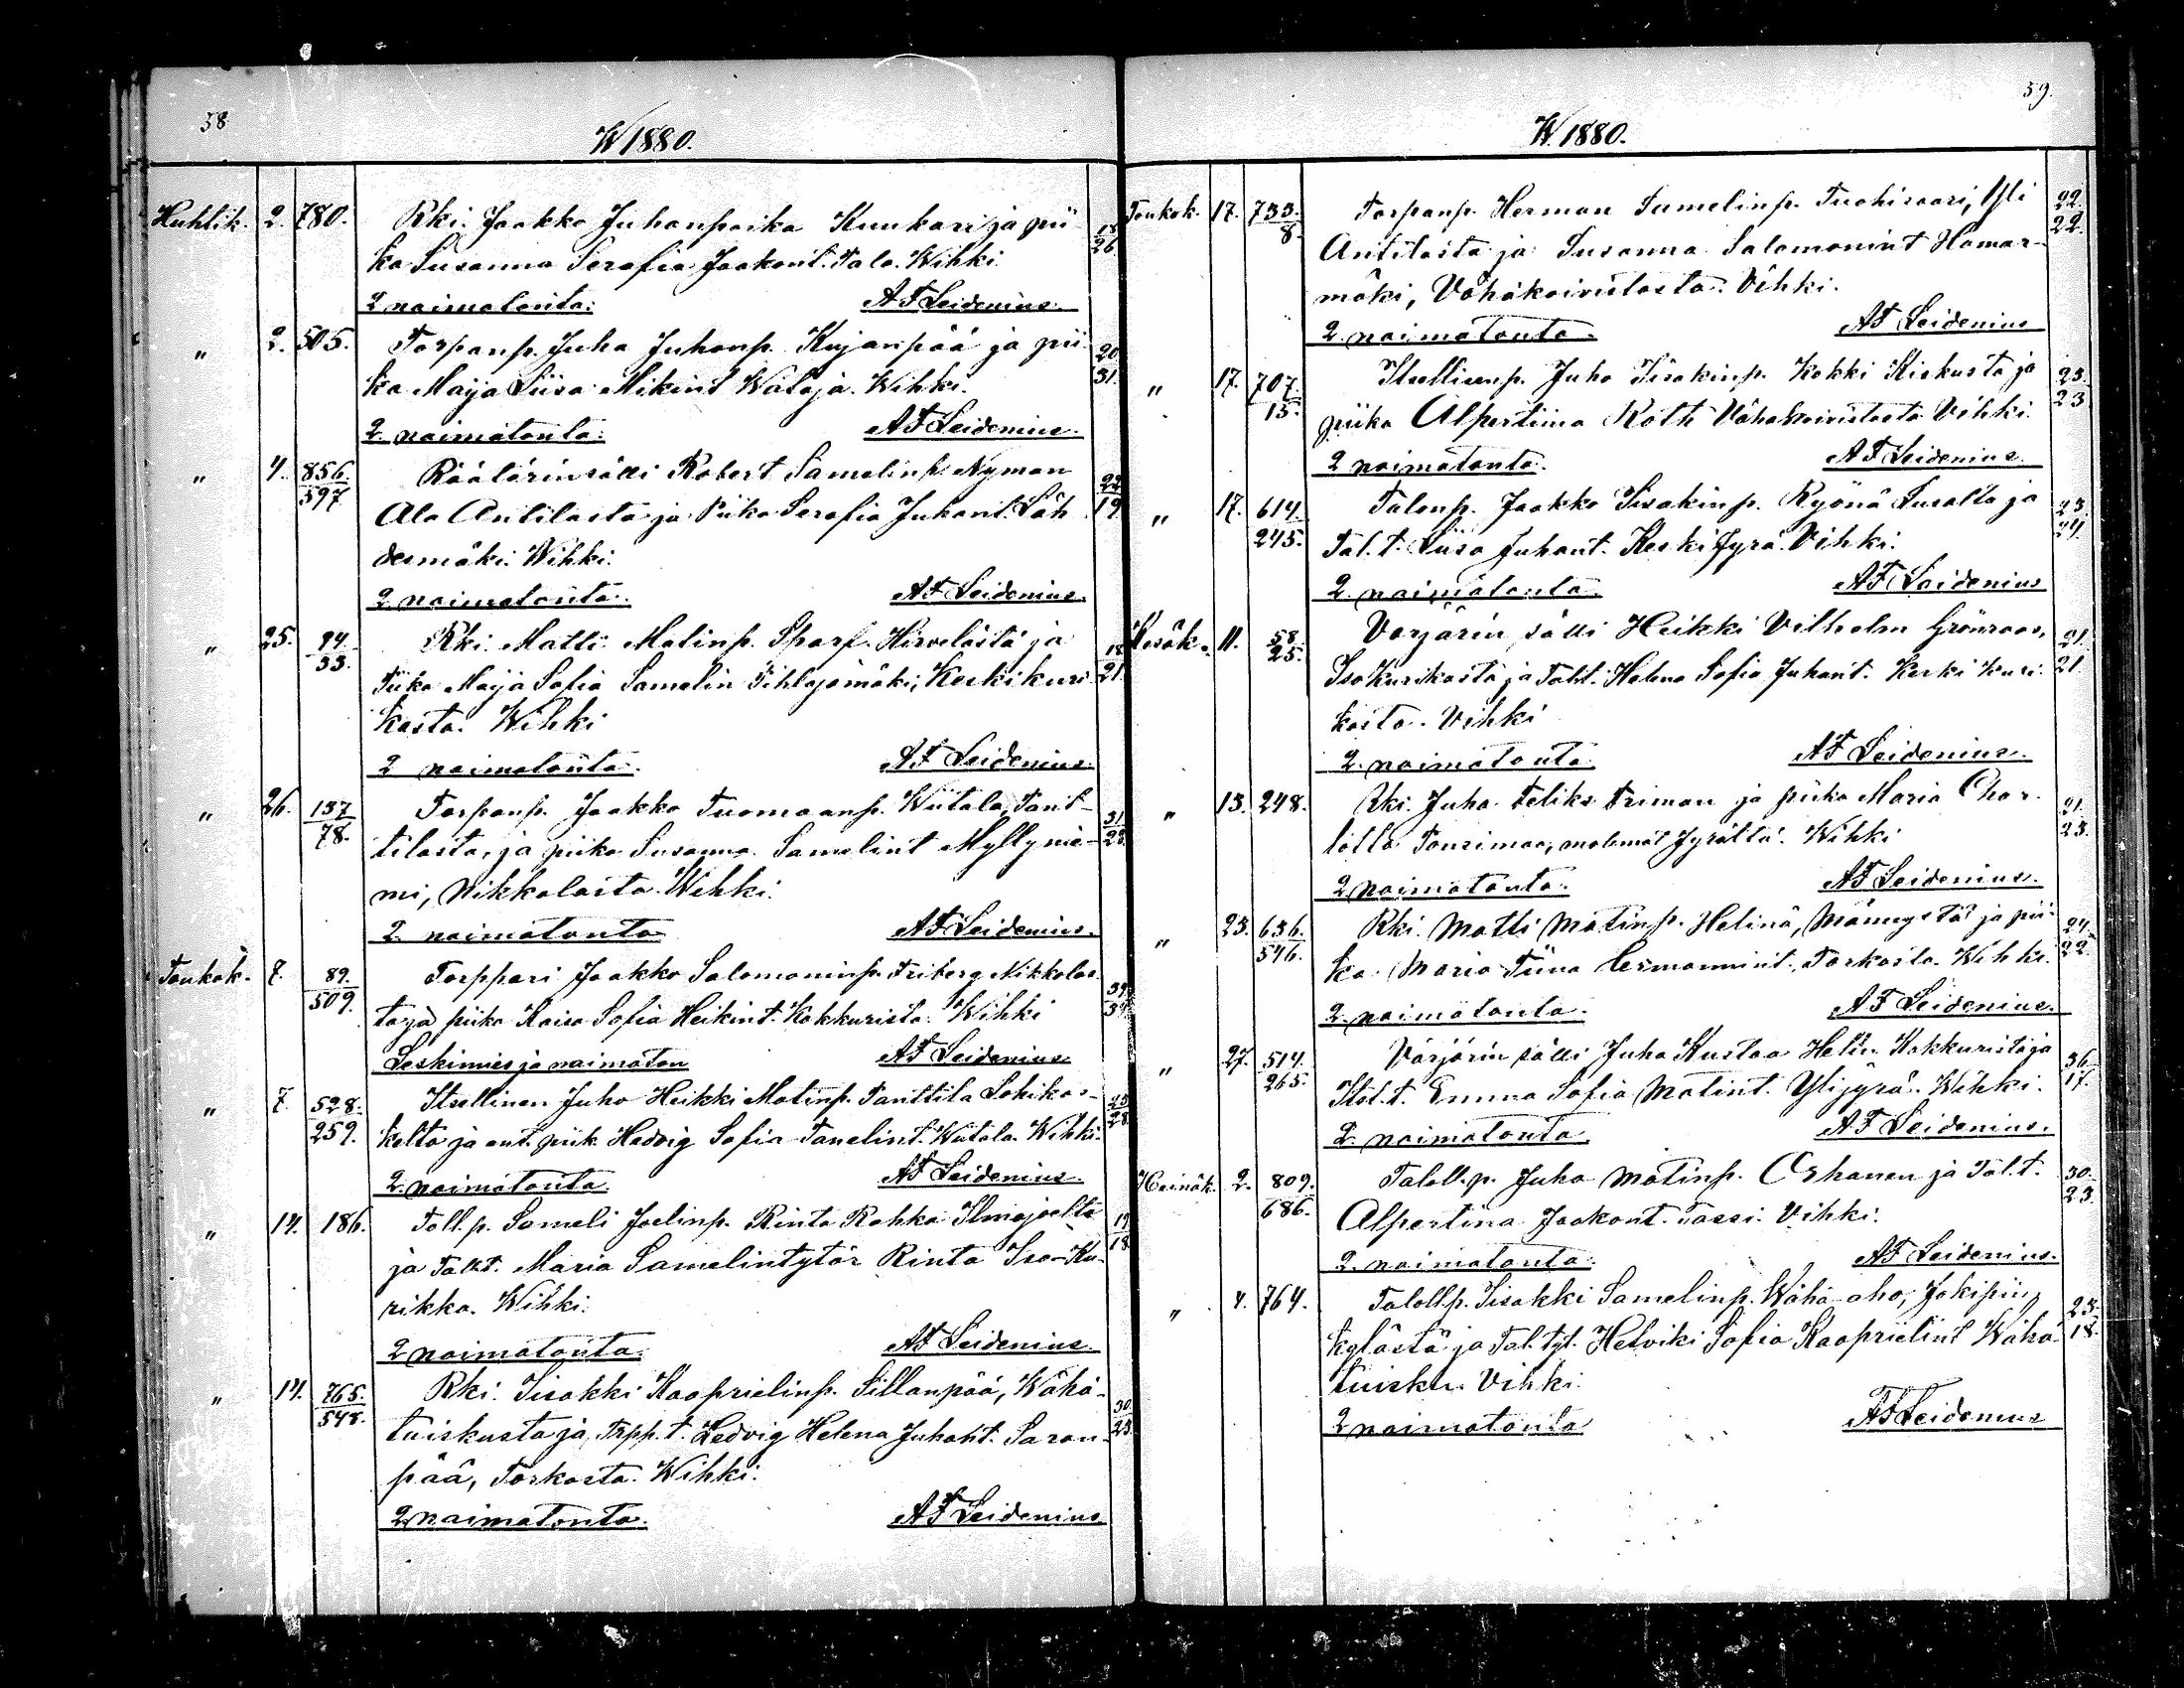 58
W 1880.
Huhtik. 2. 780. Rki. Jaakko Juhanpoika Kuukari ja pii 18
ka Susanna Serafia Jaakont. Talo. Wihki 26
2 naimatonta. AF Leidenius.
" 2. 505. Torpanp. Juha Juhanp. Kujanpää ja pii 20
ka Maija Liisa Mikint Wataja. Wihki. 31.
2. naimatonta. AF Leidenius.
" 4. 856. Räätärinsälli Robert Samelinp. Nyman 22
597 Ala Antilasta ja Piika Serafia Juhant. Läh 19
desmäki. Wihki.
2 naimatonta. AF Leidenius.
" 25. 24 Rki. Matti Matinp. Skarp. Hirvelästä ja 18
33. Piika Maija Sofia Samelin Pihlajamäki, Keskikuri 21.
kasta. Wihki
2 naimatonta. AF Leidenius.
" 26. 137 Torpanp. Jaakko Tuomaanp. Wiitala, Tant- 31
78. tilasta, ja piika Susanna Samelint Myllynie- 23
mi, Nikkolasta. Wihki.
2. naimatonta AF Leidenius.
Toukok. 7. 89. Torppari Jaakko Salomoninp. Friberg Nikkolas
509. ta ja piika Kaisa Sofia Heikint. Kakkurista. Wihki
Leskimies ja naimaton AF Leidenius
" 7. 528. Itsellinen Juho Heikki Matinp. Tanttila Lohikos- 25
259. kelta ja ent. piik Hedvig Sofia Tanelint. Wiitala. Wihki. 28.
2. naimatonta. AF Leidenius.
" 14. 186. Toll. p. Sameli Joelinp. Rinta Rahka Ilmajoelta 19
ja Talt. Maria Samelintytär Rinta Iso-Ku- 18
rikka. Wihki.
2 naimatonta. AF Leidenius.
" 14. 765. Rki. Iisakki Kaaprielinp. Sillanpää, Wähä- 30
548. tuiskusta ja Trpp. t. Hedvig Helena Juhant. Saran- 23.
pää, Torkasta. Wihki.
2 naimatonta. AF Leidenius
59.
W. 1880.
Toukok. 17. 733. Torpanp. Herman Samelinp. Tuohisaari, Yli 22.
8. Antilasta ja Susanna Salomonint Hamar- 22.
mäki, Vähäkoivistosta. Vihki.
2. naimatonta. AF Leidenius
" 17. 707. Itsellisenp. Juho Iisakinp. Kokki Kiskusta ja 23.
15. piika Alpertiina Roth Vähäkoivistosta Vihki. 23
2 naimatonta. AF Leidenius.
" 17. 614 Talonp. Jaakko Iisakinp. Ryönä Luvalta ja 23.
245. Tal. t. Liisa Juhant. Keski Jyrä. Vihki. 24.
2. naimatonta. AF Leidenius
Kesäk. 11. 58. Varjärin sälli Heikki Vilhelm Grönroos, 21.
25. Iso Kurikasta ja Talt. Helena Sofia Juhant. Keski kuri- 21
kasta. Vihki
2. naimatonta. AF Leidenius.
" 13. 248. Rki. Juha Feliks Friman ja piika Maria Char- 21.
lotta Tourimaa, molemat Jyrältä. Wihki 23.
2 naimatonta. AF Leidenius.
" 23. 636. Rki. Matti Matinp. Helinä, Männystä ja pii- 24.
546. ka Maria Tiina Hermannint. Torkasta. Wihki. 22.
2. naimatonta. AF Leidenius.
" 27. 514. Värjärin sälli Juha Kustaa Helin Kakkurista ja 36
265. Itsl. t. Emma Sofia Matint. Ylijyrä. Wihki. 17.
2. naimatonta. AF Leidenius.
Heinäk. 2. 809. Taloll. p. Juha Matinp. Orhanen ja Tal. t. 30.
686. Alpertina Jaakont. Tassi. Vihki. 23.
2. naimatonta. AF Leidenius.
" 4. 764. Taloll. p. Iisakki Samelinp. Wähä-aho, Jokipiin 23.
kylästä ja Tal. tyt. Helviki Sofia Kaaprielint Wähä- 18.
tuisku. Vihki.
2 naimatonta AF Leidenius